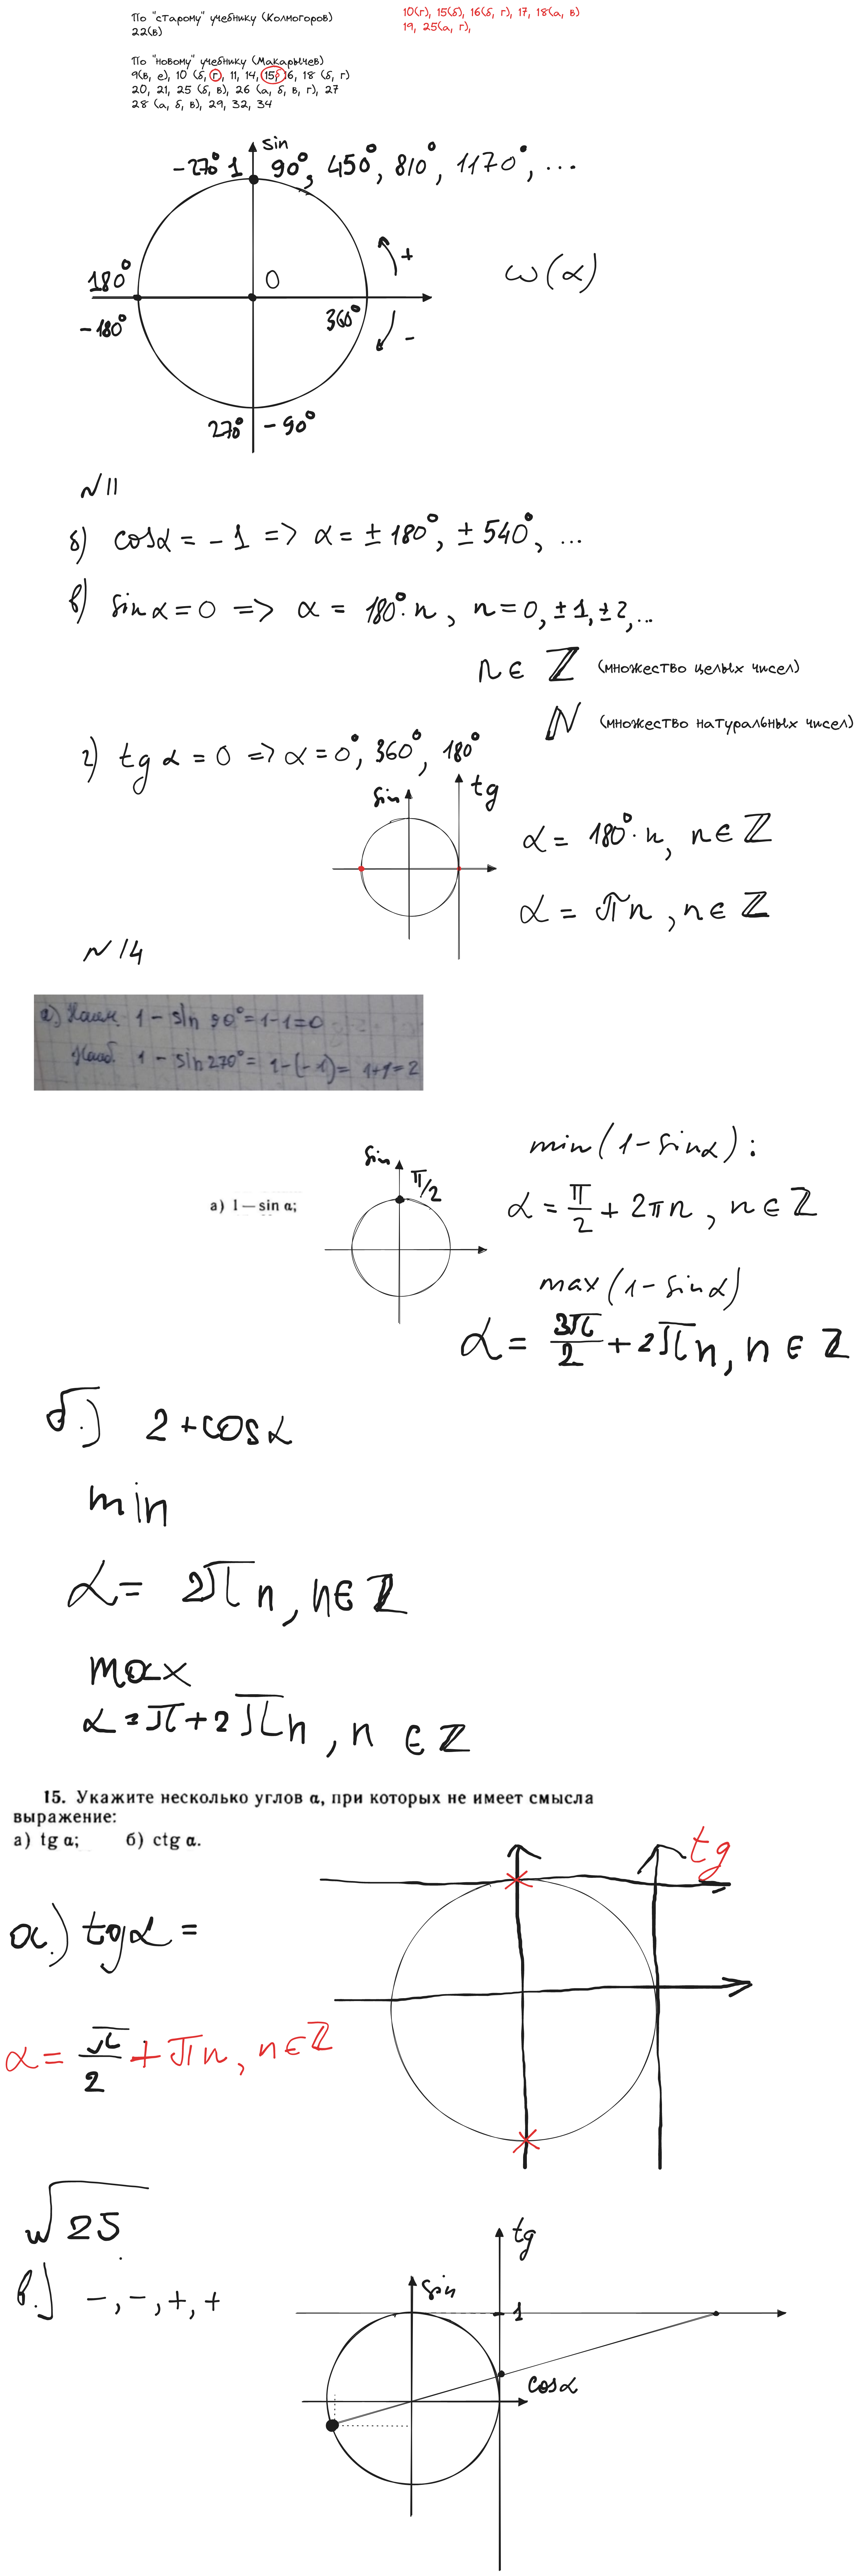 По "старому" учебнику (Колмогоров)
22(в)
10(г), 15(б), 16(б, г), 17, 18(а, в)
19, 25(а, г),
По "новому" учебнику (Макарычев)
9(в, е), 10 (б, г), 11, 14, 15б 6, 18 (б, г)
20, 21, 25 (б, в), 26 (а, б, в, г), 27
28 (а, б, в), 29, 32, 34
sin
-270° 1 90°, 450°, 810°, 1170°, ...
+
ω(α)
180° 0
-180° 360°
-
270° -90°
N 11
б) cosα = -1 => α = ± 180°, ± 540°, ...
в) sin α = 0 => α = 180°·n, n = 0, ±1, ±2, ...
n ∈ ℤ (множество целых чисел)
ℕ (множество натуральных чисел)
г) tg α = 0 => α = 0°, 360°, 180°
sin tg
α = 180°·n, n ∈ ℤ
α = πn, n ∈ ℤ
N 14
а) Наим. 1 - sin 90° = 1-1=0
Наиб. 1 - sin270° = 1-(-1)= 1+1=2
min(1-sinα):
sin π/2
а) 1 — sin α;
α = π/2 + 2πn, n ∈ ℤ
max(1-sinα)
α = 3π/2 + 2πn, n ∈ ℤ
б.) 2 + cosα
min
α = 2πn, n ∈ ℤ
max
α = π + 2πn, n ∈ ℤ
15. Укажите несколько углов α, при которых не имеет смысла
выражение:
а) tg α; б) ctg α.
tg
а.) tgα =
α = π/2 + πn, n ∈ ℤ
√25
в.) -, -, +, +
tg
sin
1
cosα